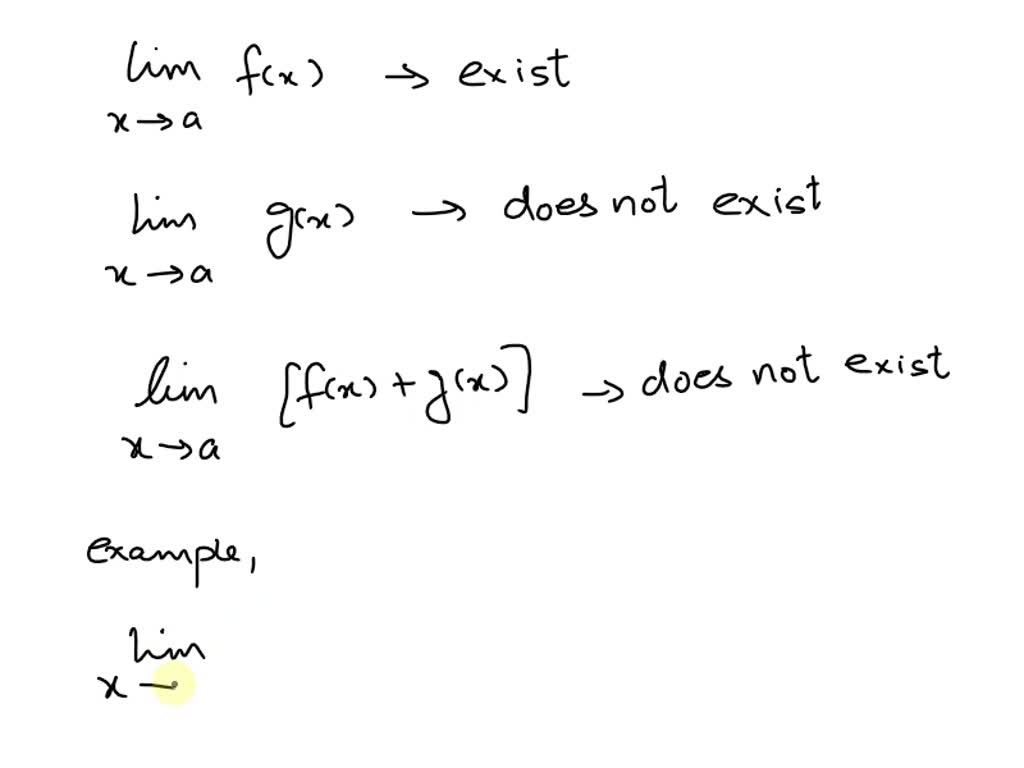 lim f(x) → exist
x → a
lim g(x) → does not exist
x → a
lim [f(x) + g(x)] → does not exist
x → a
example,
lim
x –